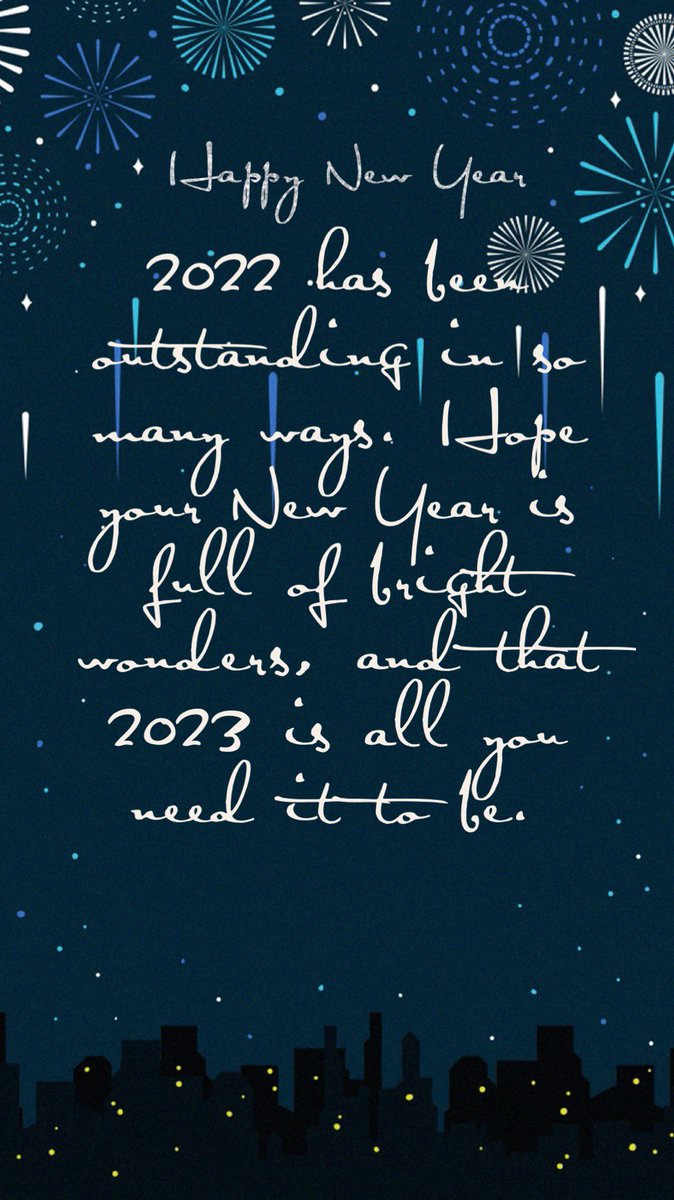 Happy New Year
2022 has been
outstanding in so
many ways. Hope
your New Year is
full of bright
wonders, and that
2023 is all you
need it to be.